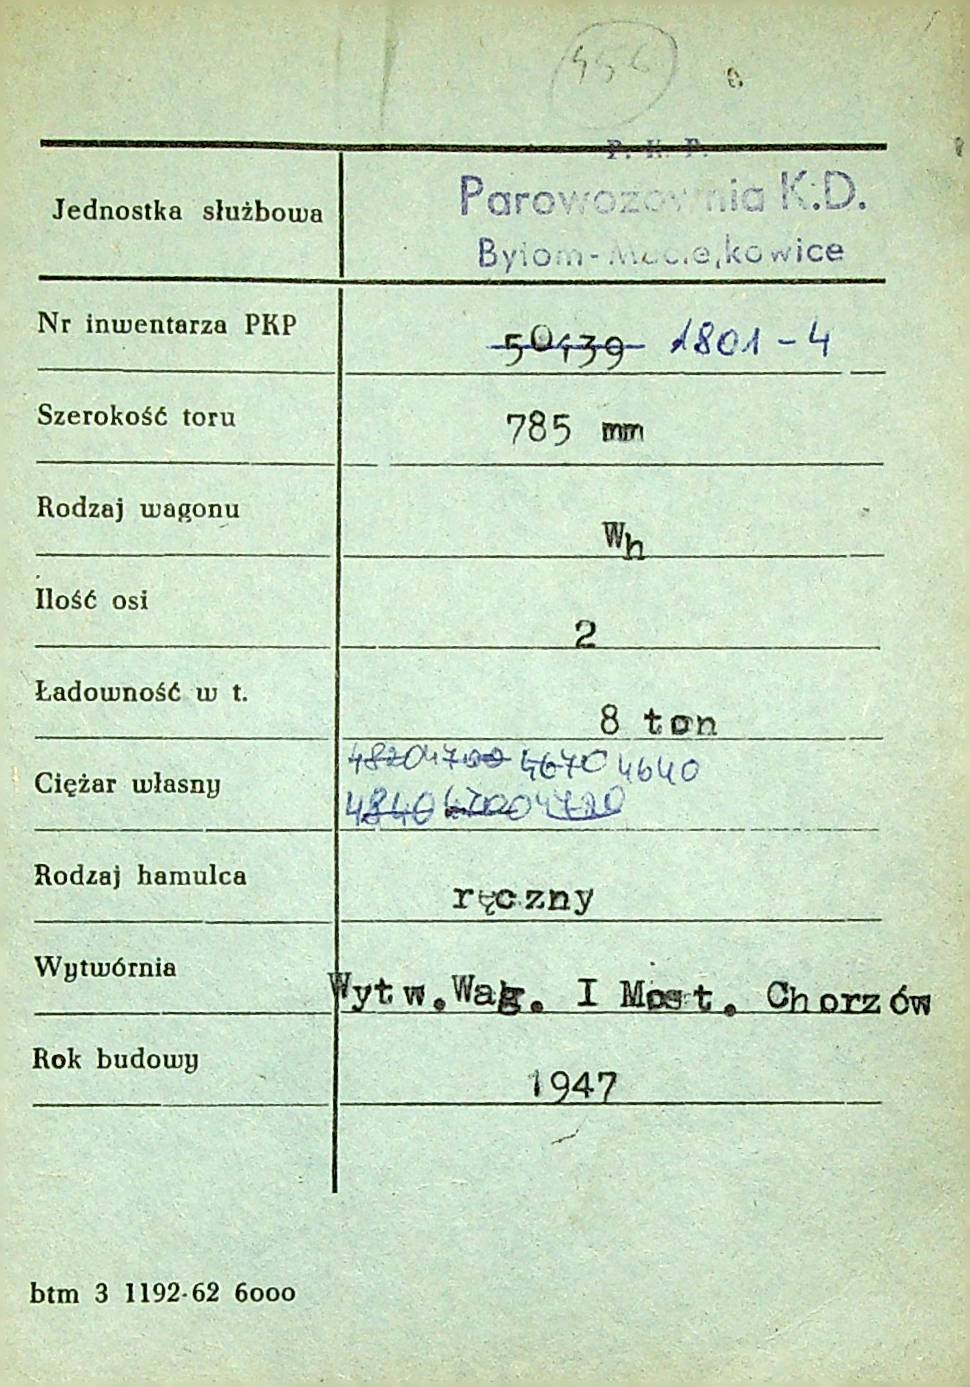 456
P. K. P.
Jednostka służbowa
Parowozownia K.D.
Bytom-Maciejkowice
Nr inwentarza PKP
50439 1801-4
Szerokość toru
785 mm
Rodzaj wagonu
Wh
Ilość osi
2
Ładowność w t.
8 ton
4820 4700 4670 4640
Ciężar własny
4840 4700 4720
Rodzaj hamulca
ręczny
Wytwórnia
Wytw.Wag. I Most. Chorzów
Rok budowy
1947
btm 3 1192-62 6000